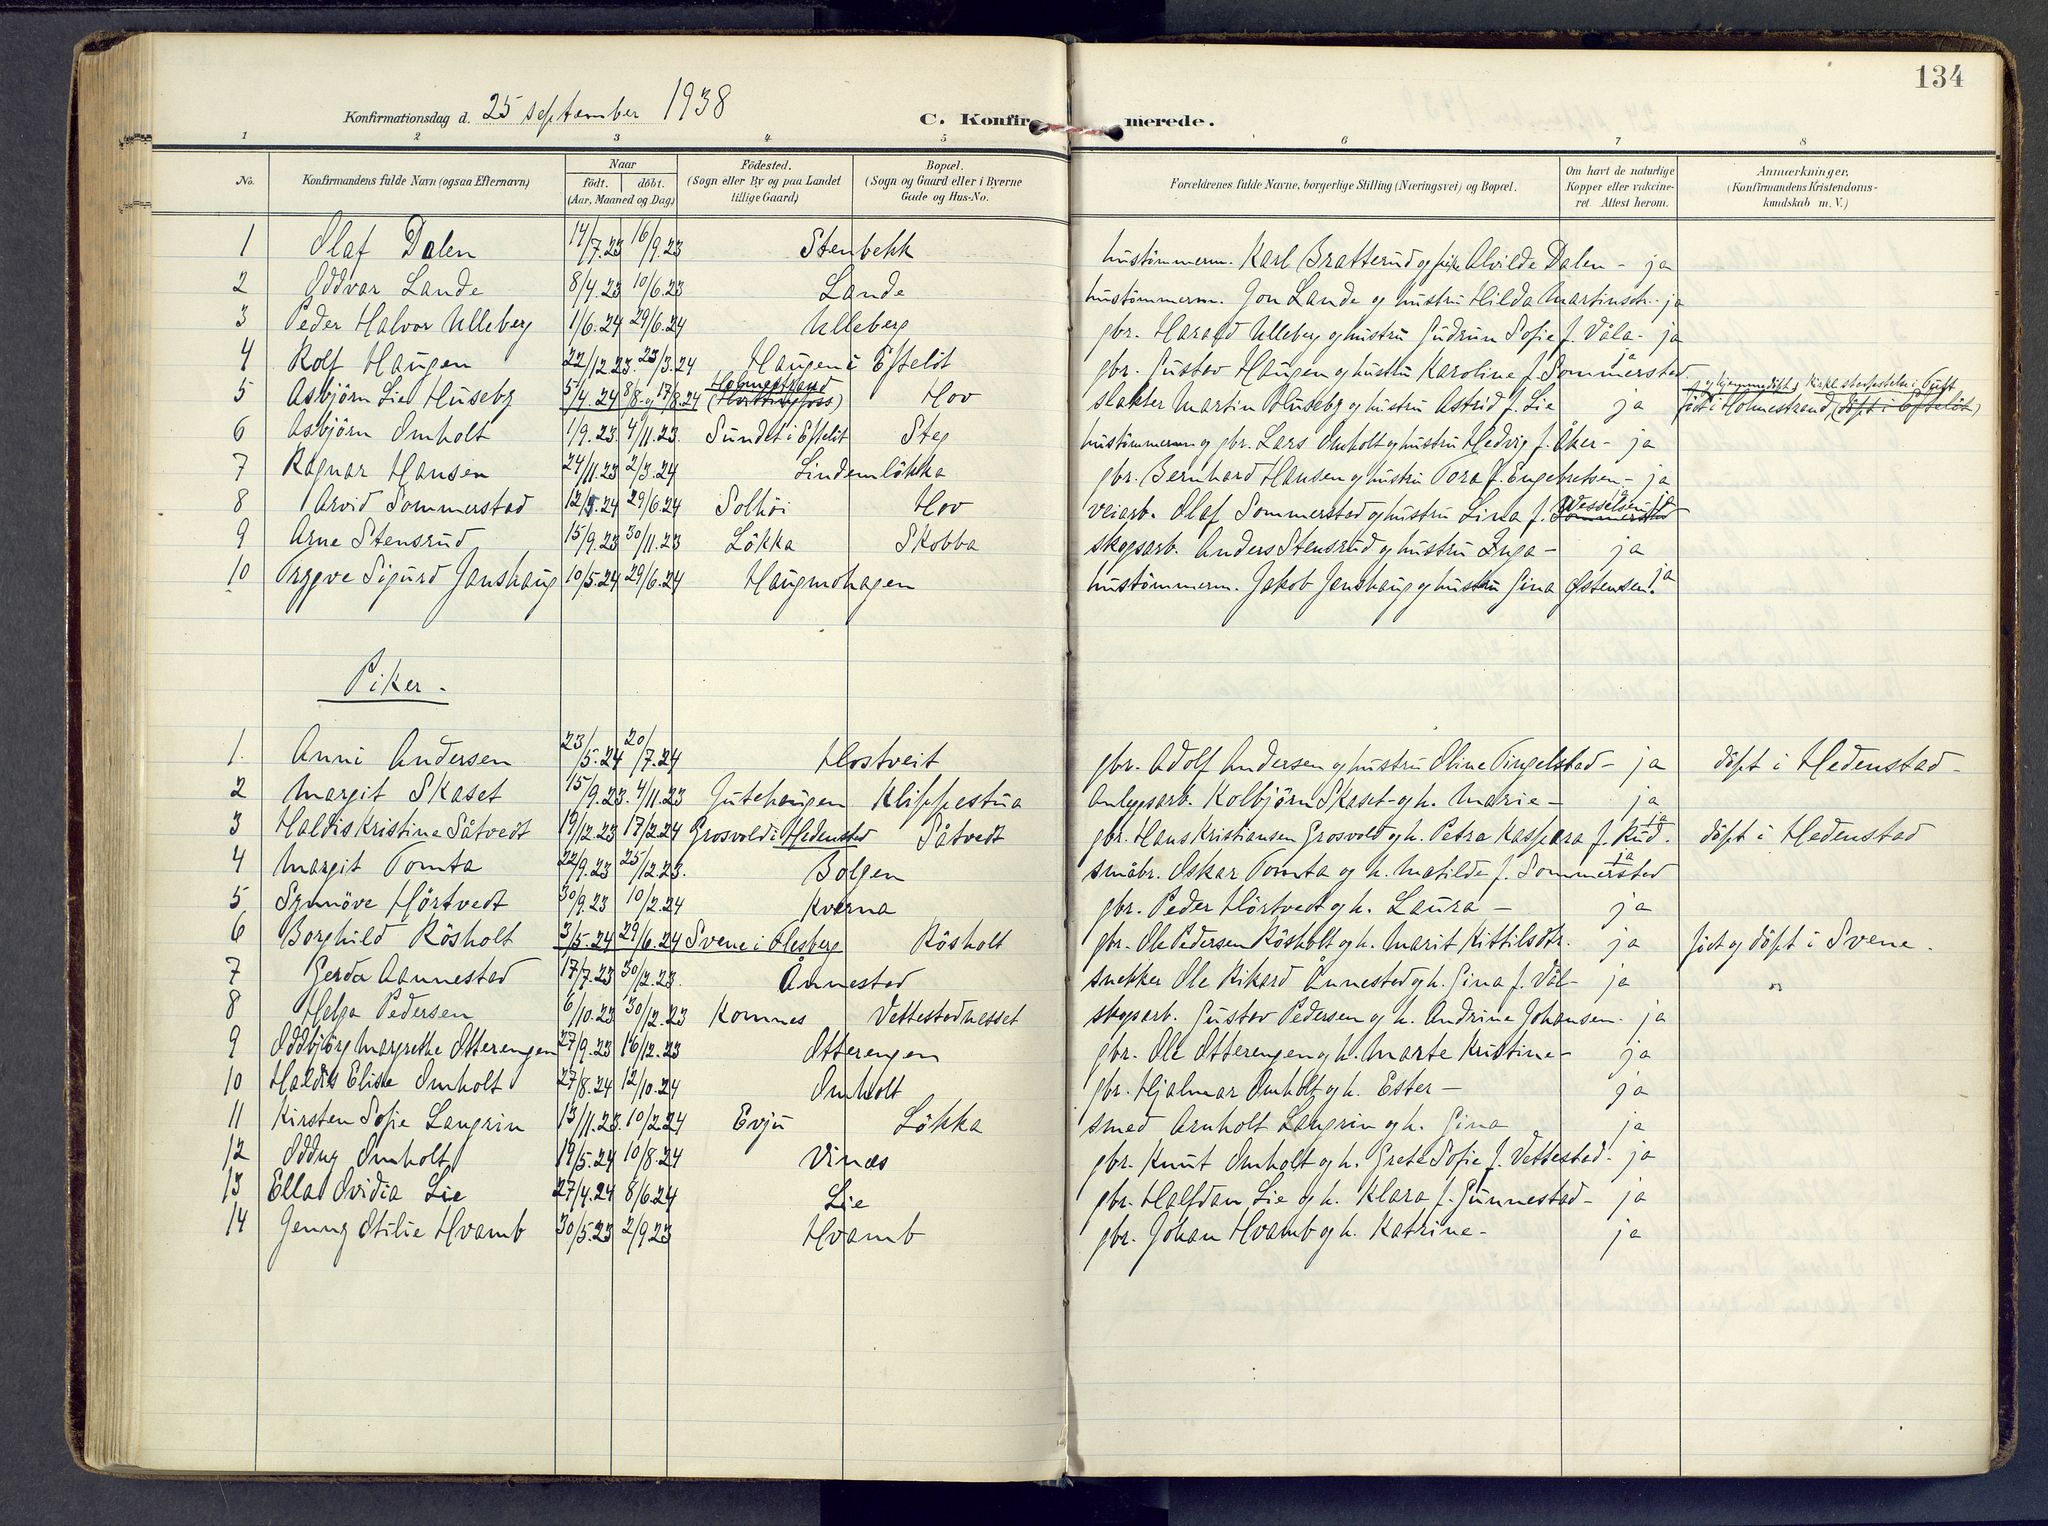 134
Konfirmationsdag d. 25 september 1938
C. Konfirmerede.
1 2 3 4 5 6 7 8
No.
Konfirmandens fulde Navn (ogsaa Efternavn)
Naar
født. døbt.
(Aar, Maaned og Dag)
Fødested.
(Sogn eller By og paa Landet
tillige Gaard)
Bopæl.
(Sogn og Gaard eller i Byerne
Gade og Hus-No.
Forældrenes fulde Navne, borgerlige Stilling (Næringsvei) og Bopæl.
Om havt de naturlige
Kopper eller vakcine-
ret. Attest herom.
Anmærkninger.
(Konfirmandens Kristendoms-
kundskab m. V.)
1 Olaf Dalen 14/7.23 16/9.23 Stenbekk hustømmerm. Karl Bratterud og frøk Alvilde Dalen - ja
2 Oddvar Lande 8/4.23 10/6.23 Lande hustømmerm. Jon Lande og hustru Hilda Martinsdtr. - ja
3 Peder Halvor Ulleberg 1/6.24 29/6.24 Ulleberg gbr. Harald Ulleberg og hustru Gudrun Sofie f. Våla - ja
4 Rolf Haugen 22/12.23. 23/3.24 Haugen i Efteløt gbr. Gustav Haugen og hustru Karoline f. Sommerstad ja
5 Asbjørn Lie Huseby 5/4.24 8/8. og 17/8.24 Holmestrand (Hvittingfoss) Hov slakter Martin Huseby og hustru Astrid f. Lie ja og hjemmedøpt, kirkl. stadfestelse i Tuft født i Holmestrand (døpt i Efteløt)
6 Asbjørn Omholt 1/9.23. 4/11.23. Sundet i Efteløt Steg hustømmerm og gbr. Lars Omholt og hustru Hedvig f. Åker - ja
7 Ragnar Hansen 24/11.23 2/3.24 Lindemløkka gbr. Bernhard Hansen og hustru Tora f. Engebretsen - ja
8 Arvid Sommerstad 12/5.24 29/6.24 Solhøi Hov veiarb. Olaf Sommerstad og hustru Lina f. Wesselsen ja
9 Arne Stensrud 15/9.23 30/11.23 Løkka Skobba skogsarb. Anders Stensrud og hustru Inga - ja
10 Trygve Sigurd Janshaug 10/5.24 29/6.24 Haugmohagen hustømmerm. Jakob Janshaug og hustru Gina Østensen. ja
Piker.
1. Anni Andersen 23/5.24 20/7.24 Hostveit gbr. Adolf Andersen og hustru Oline Tingelstad - ja døpt i Hedenstad -
2 Margit Skaset 15/9.23. 4/11.23 Gutehaugen Klippestua anleggsarb. Kolbjørn Skaset - og h. Marie - ja
3 Haldis Kristine Såtvedt 19/12.23 17/2.24 Grosvold i Hedenstad Såtvedt gbr. Hans Kristiansen Grosvold og h. Petra Kaspara f. Rud. ja døpt i Hedenstad
4 Margit Tomta 22/9.23 25/12.23. Bolgen småbr. Oskar Tomta og h. Matilde f. Sommerstad ja
5 Synnøve Hørtvedt 30/9.23 10/2.24 Kverna gbr. Peder Hørtvedt og h. Laura - ja
6 Borghild Røsholt 3/5.24 29/6.24 Svene i Flesberg Røsholt gbr. Ole Pedersen Røsholt og h. Marit Kittilsdtr. ja født og døpt i Svene.
7 Gerda Aannestad 17/7.23 30/12.23. Ånnestad snekker Ole Rikard Ånnestad og h. Gina f. Vål - ja
8 Helga Pedersen 6/10.23 30/12.23 Komnes Vettestadnesset skogsarb. Gustav Pedersen og h. Andrine Johansen. ja
9 Oddbjørg Margrethe Otterengen 27/9.23 16/12.23 Otterengen gbr. Ole Otterengen og h. Marte Kristine - ja
10 Haldis Elise Omholt 27/8.24 12/10.24 Omholt gbr. Hjalmar Omholt og h. Ester - ja
11 Kirsten Sofie Langrin 13/11.23. 10/2.24 Evju Løkka smed Arnholt Langrin og h. Gina ja
12 Oddny Omholt 19/5.24 10/8.24 Vinæs gbr. Knut Omholt og h. Grete Sofie f. Vettestad - ja
13 Ella Ovidia Lie 27/4.24 8/6.24 Lie gbr. Halfdan Lie og h. Klara f. Gunnestad - ja
14 Jenny Otilie Hvamb 30/5.23 2/9.23 Hvamb gbr. Johan Hvamb og h. Katrine - ja